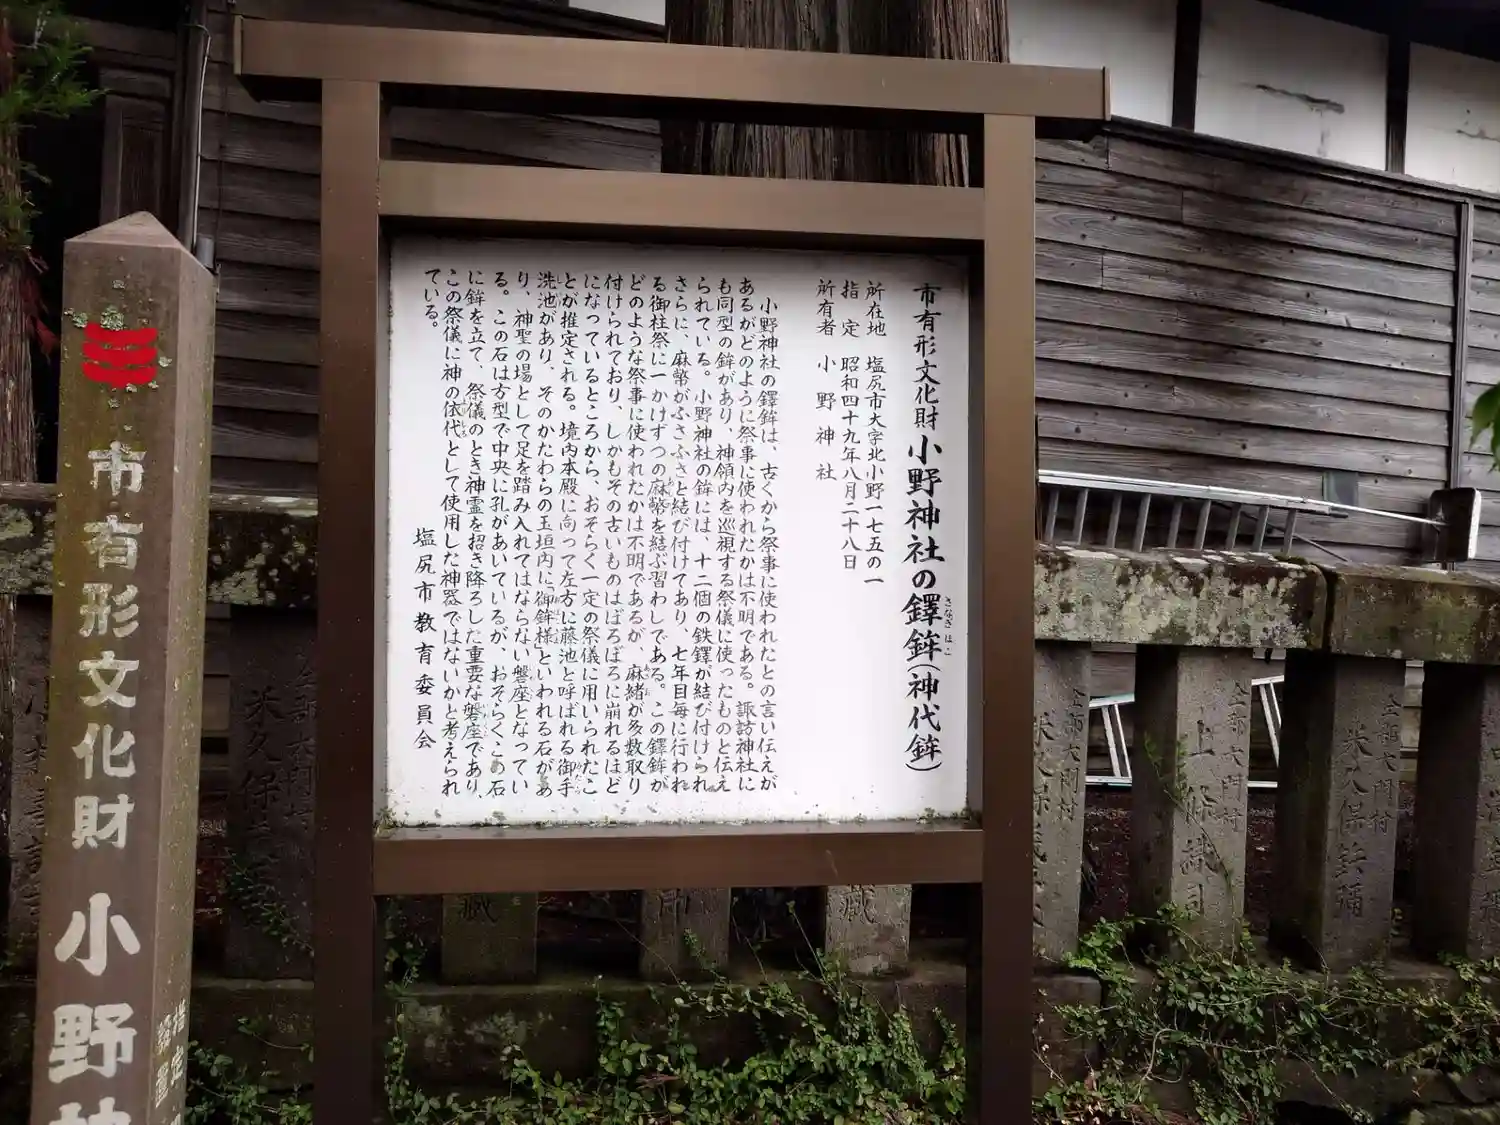 市有形文化財 小野神社の鐸鉾(神代鉾)
さなぎほこ
所在地 塩尻市大字北小野一七五の一
指定 昭和四十九年八月二十八日
所有者 小野神社
小野神社の鐸鉾は、古くから祭事に使われたとの言い伝えが
あるがどのように祭事に使われたかは不明である。諏訪神社に
も同型の鉾があり、神領内を巡視する祭儀に使ったものと伝え
られている。小野神社の鉾には、十二個の鉄鐸が結び付けられ
さらに、麻幣がふさふさと結び付けてあり、七年目毎に行われ
る御柱祭に一かけずつの麻幣を結ぶ習わしである。この鐸鉾が
どのような祭事に使われたかは不明であるが、麻緒が多数取り
付けられており、しかもその古いものはぼろぼろに崩れるほど
になっているところから、おそらく一定の祭儀に用いられたこ
とが推定される。境内本殿に向って左方に藤池と呼ばれる御手
洗池があり、そのかたわらの玉垣内に「御鉾様」といわれる石があ
り、神聖の場として足を踏み入れてはならない磐座となってい
る。この石は方型で中央に孔があいているが、おそらくこの石
に鉾を立て、祭儀のとき神霊を招き降ろした重要な磐座であり、
この祭儀に神の依代として使用した神器ではないかと考えられ
ている。
塩尻市教育委員会
市有形文化財 小野
指定
全部大門村
上條識司
全部大門村
米久保鉾彌
米久保